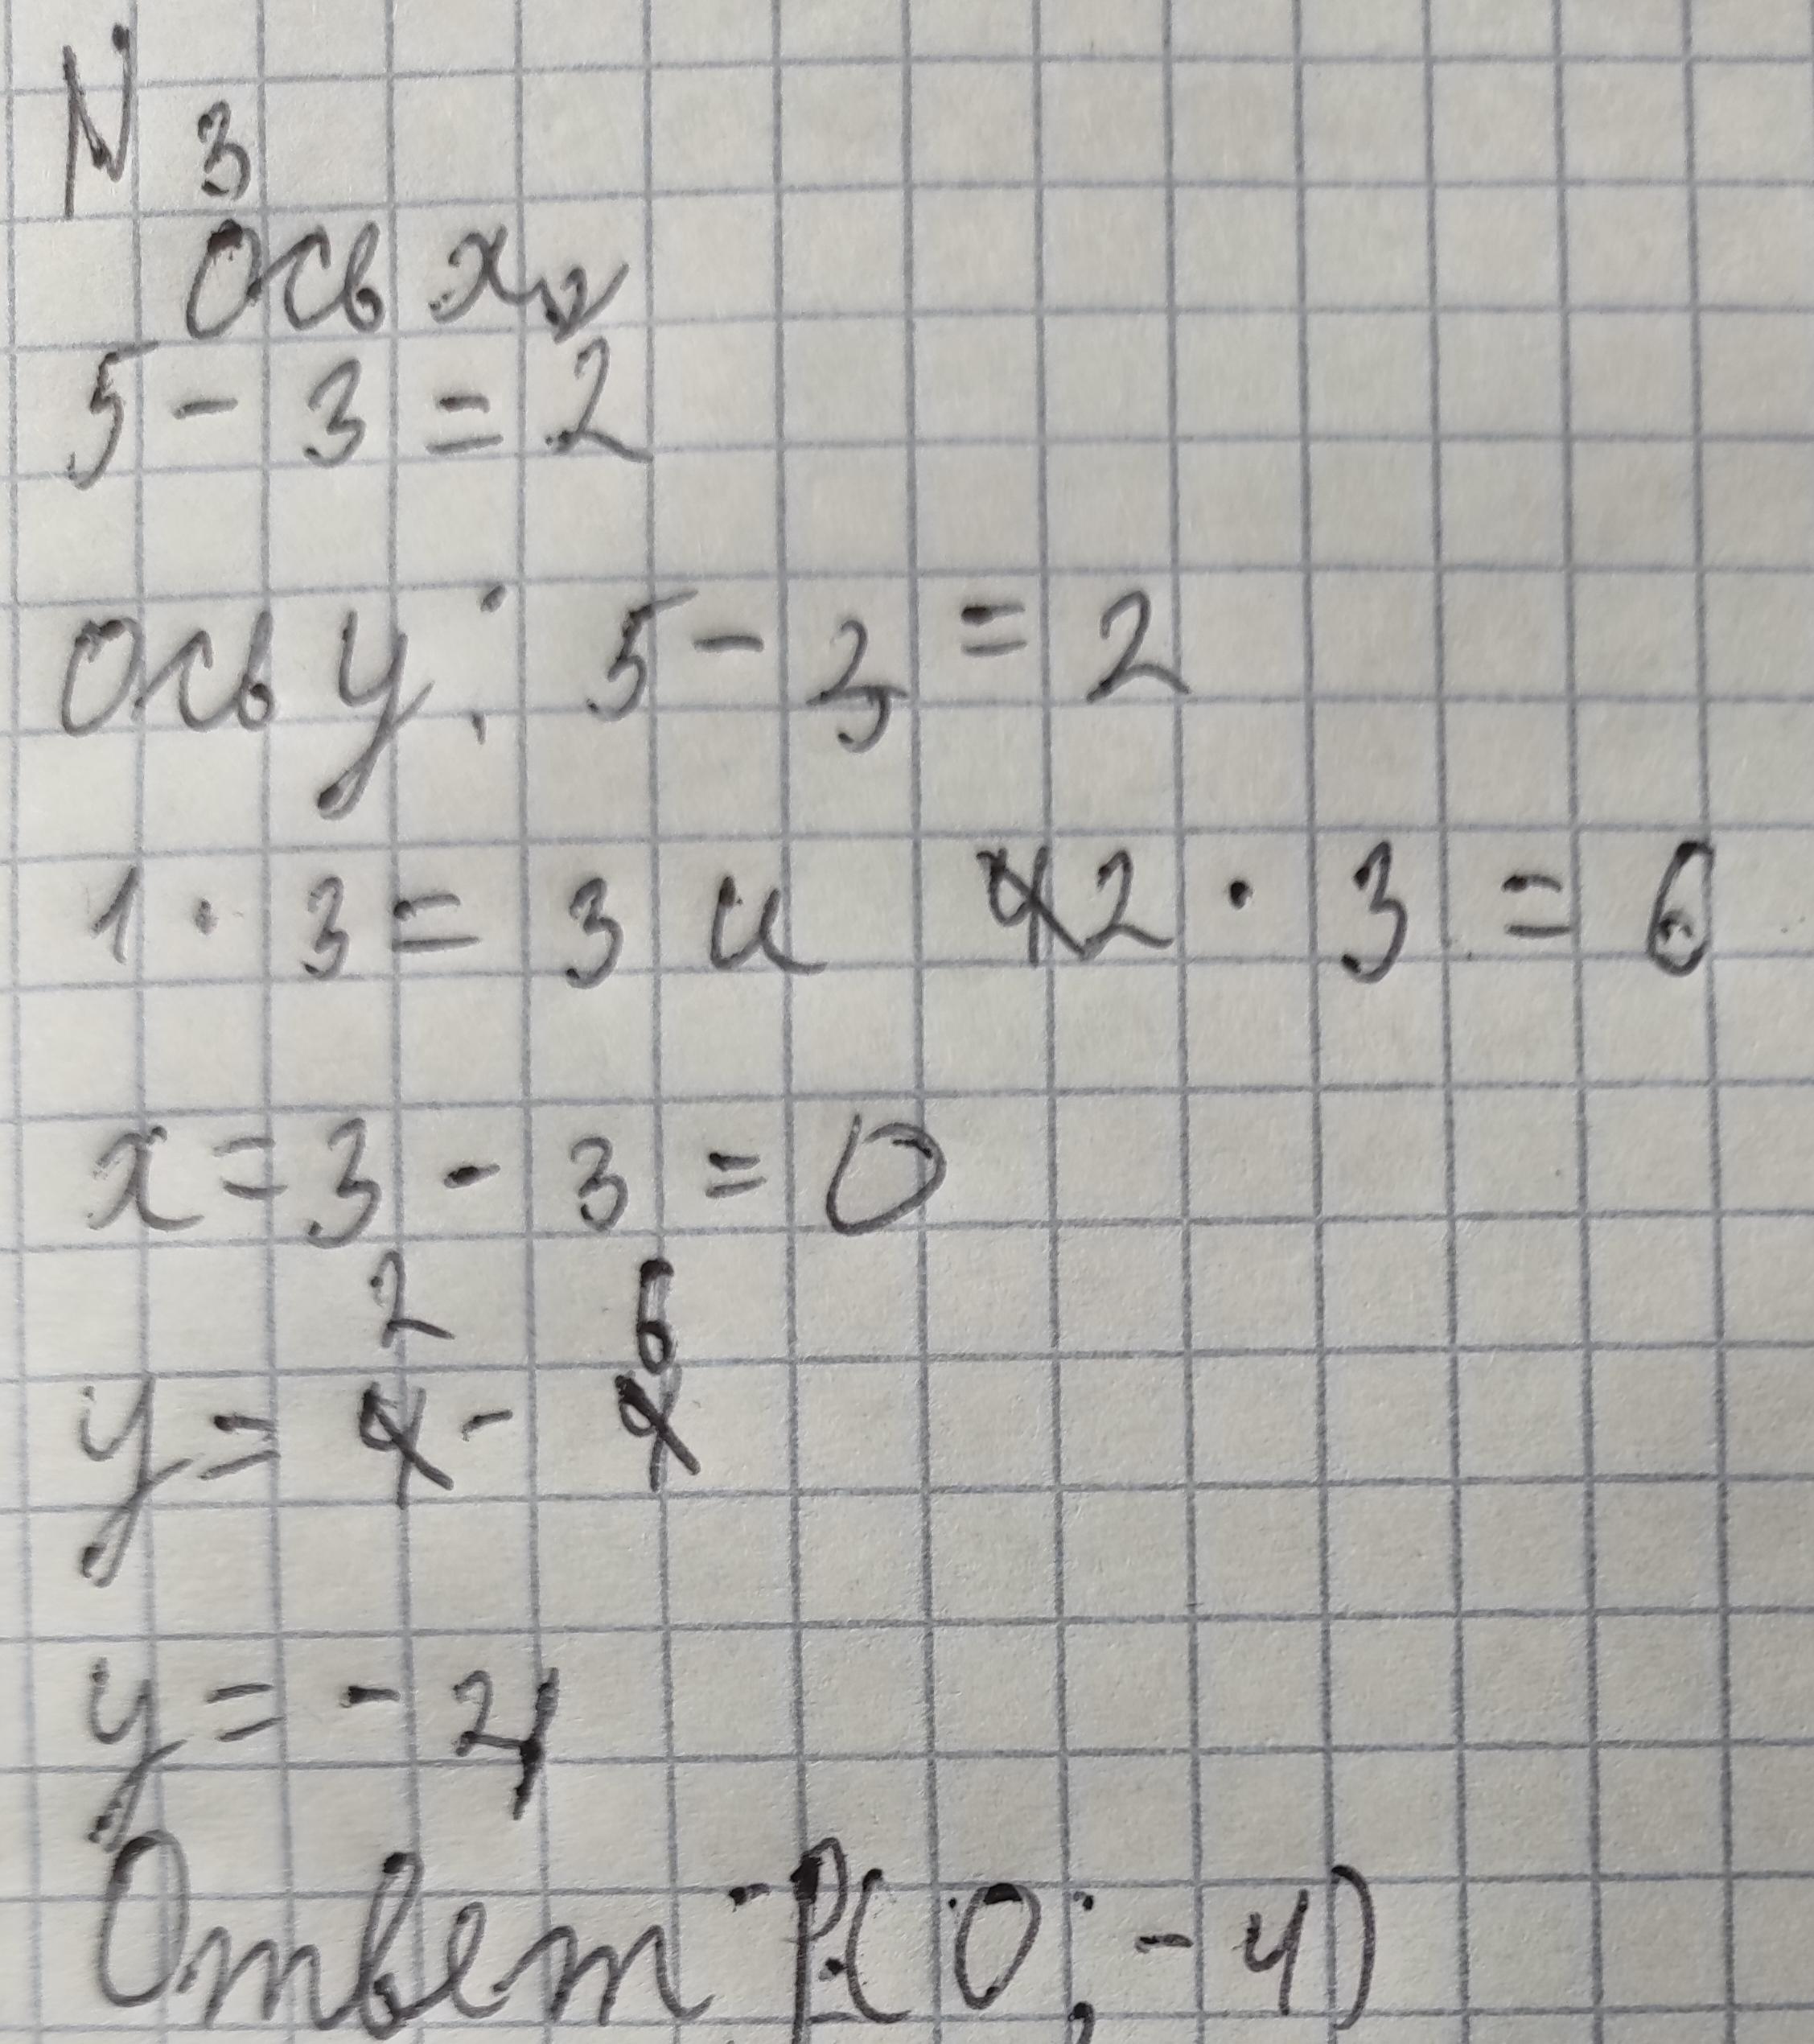 N 3
Ось x
5 - 3 = 2
Ось y: 5 - 3 = 2
1 · 3 = 3 и 2 · 3 = 6
x = 3 - 3 = 0
y = 2 - 6
y = - 4
Ответ: P(0; -4)